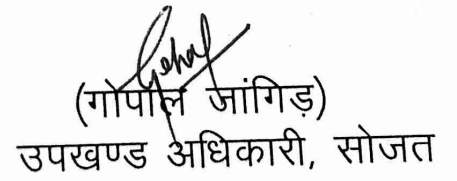 (गोपाल जांगिड़)
उपखण्ड अधिकारी, सोजत